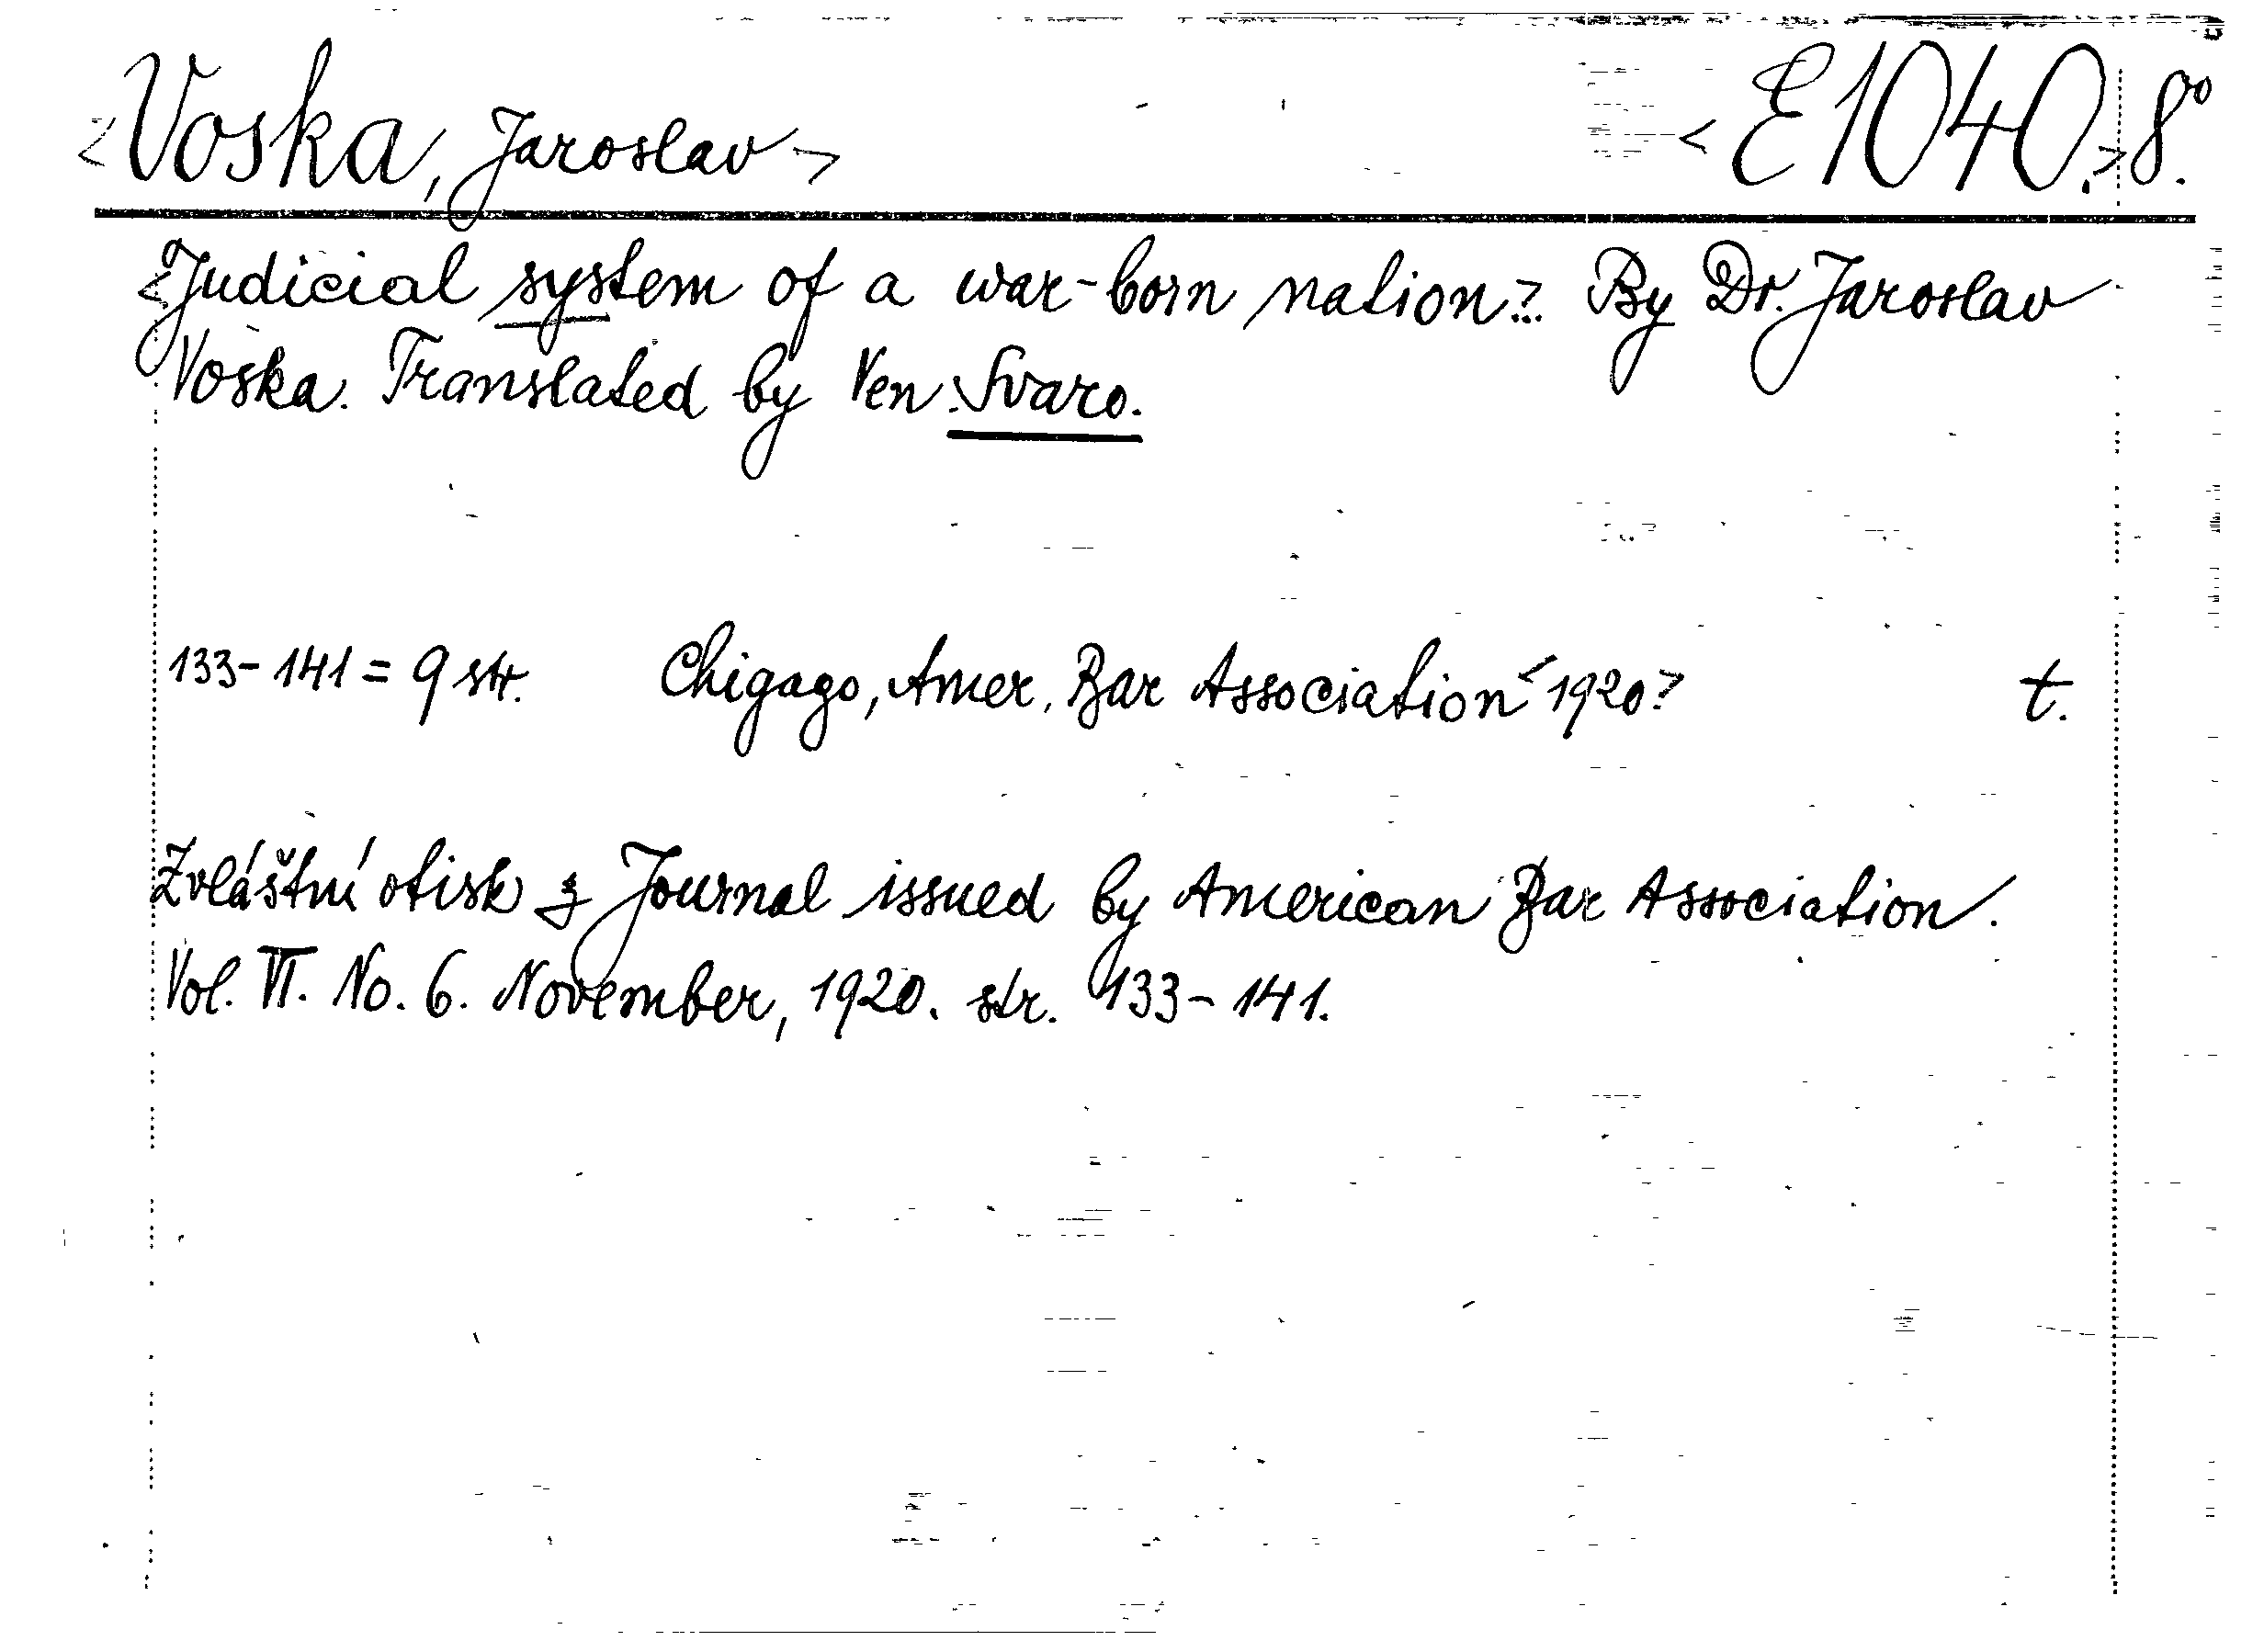 <Voska, Jaroslav> <E1040.> 8°.
<Judicial system of a war-born nation>... By Dr. Jaroslav
Voska. Translated by Ven. Svarc.
133-141 = 9 str. Chigago, Amer. Bar Association <1920> t.
Zvláštní otisk z Journal issued by American Bar Association.
Vol. VI. No. 6. November, 1920. str. 133-141.